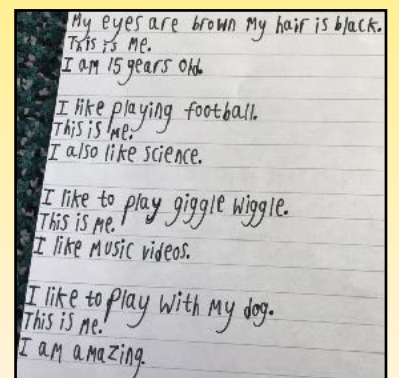 My eyes are brown My hair is black.
This is Me.
I am 15 years old.
I like playing football.
This is Me.
I also like science.
I like to play giggle wiggle.
This is Me.
I like Music videos.
I like to play With My dog.
This is Me.
I am amazing.